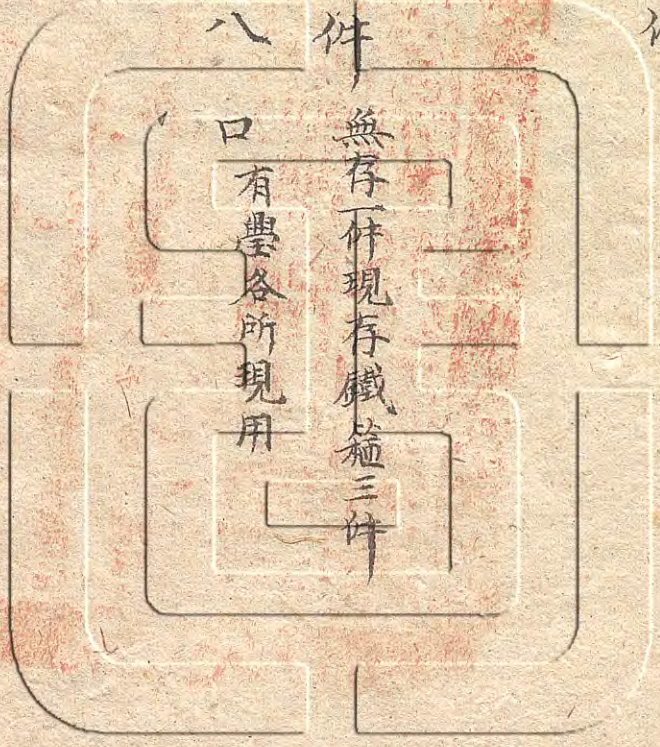 件
無存一件現存鐵箍三件
八
口有壘各所現用